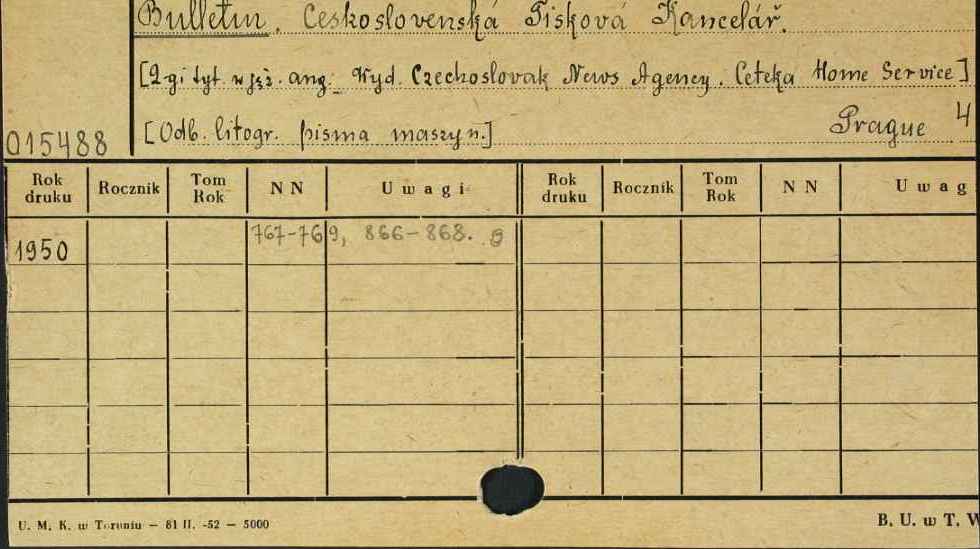 Bulletin. Československá Tisková Kancelář.
[2-gi tyt. w jęz. ang: Wyd. Czechoslovak News Agency. Ceteka Home Service]
015488 [Odb. litogr. pisma maszyn.] Prague 4
Rok druku Rocznik Tom Rok N N Uwagi Rok druku Rocznik Tom Rok N N Uwag
1950 767-769, 866-868.
U. M. K. w Toruniu — 81 II. -52 — 5000 B. U. w T. W